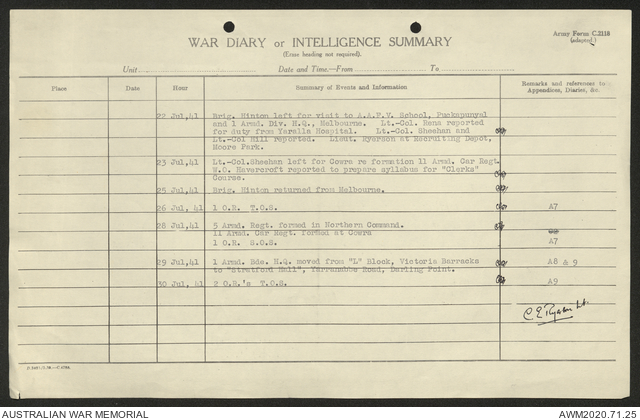 Army Form C.2118
(adapted.)
WAR DIARY or INTELLIGENCE SUMMARY
(Erase heading not required).
Unit Date and Time.—From To
Place Date Hour Summary of Events and Information Remarks and references to Appendices, Diaries, &c.
22 Jul,41 Brig. Hinton left for visit to A.A.F.V. School, Puckapunyal
and 1 Armd. Div. H.Q., Melbourne. Lt.-Col. Rens reported
for duty from Yaralla Hospital. Lt.-Col. Sheehan and
Lt.-Col Hill reported. Lieut. Ryerson at Recruiting Depot,
Moore Park.
23 Jul,41 Lt.-Col.Sheehan left for Cowra re formation 11 Armd. Car Regt.
W.O. Havercroft reported to prepare syllabus for "Clerks"
Course.
25 Jul,41 Brig. Hinton returned from Melbourne.
26 Jul, 41 1 O.R. T.O.S. A7
28 Jul,41 5 Armd. Regt. formed in Northern Command.
11 Armd. Car Regt. formed at Cowra
1 O.R. S.O.S. A7
29 Jul,41 1 Armd. Bde. H.Q. moved from "L" Block, Victoria Barracks A8 & 9
to "Stratford Hall", Yarranabbe Road, Darling Point.
30 Jul, 41 2 O.R.'s T.O.S. A9
AUSTRALIAN WAR MEMORIAL AWM2020.71.25